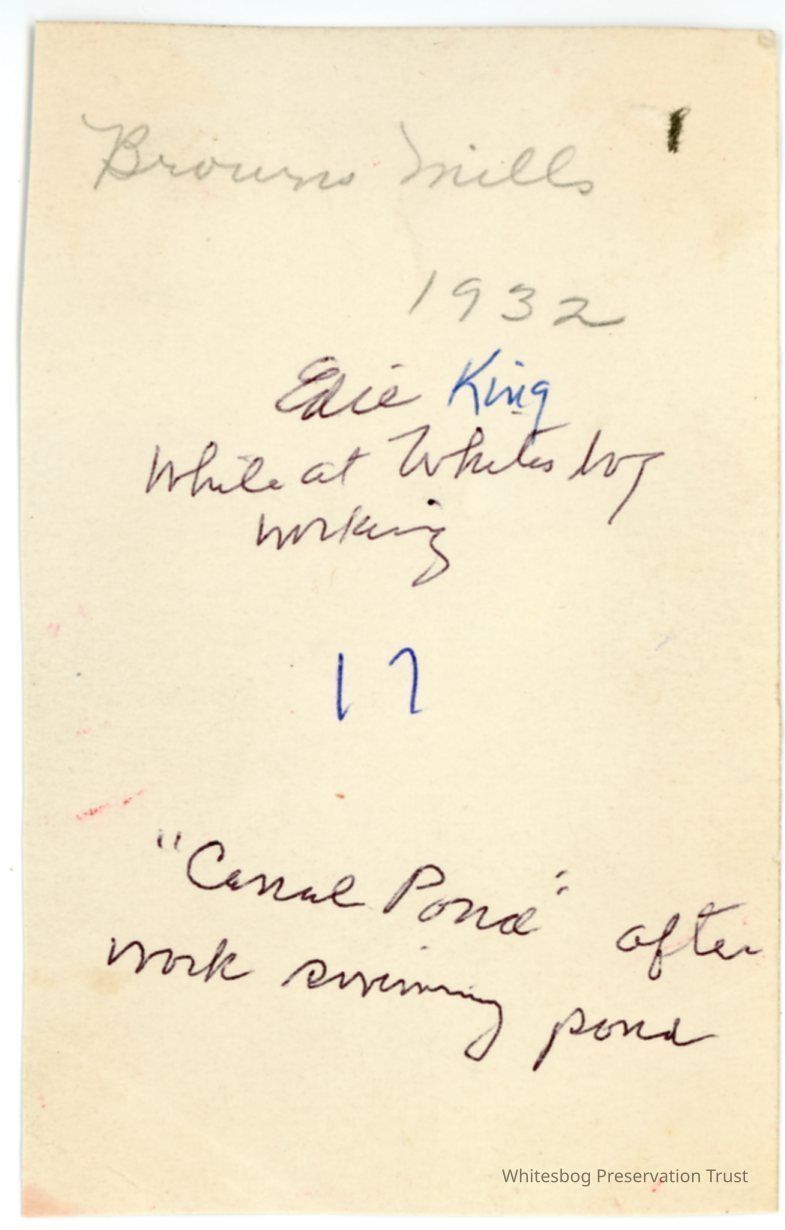 Browns Mills
1932
Edie King
While at Whites bog
working
17
"Canal Pond" after
work swimming pond
Whitesbog Preservation Trust